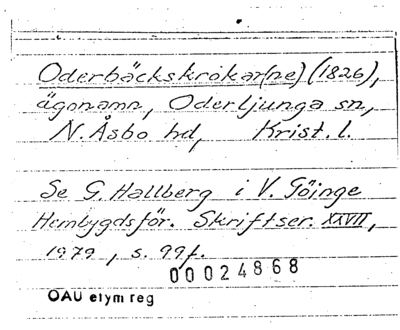 Oderbäckskrokar(ne) (1826),
ägonamn, Oderljunga sn,
N. Åsbo hd, Krist. l.
Se G. Hallberg i V. Göinge
Hembygdsför. Skriftser. XXVII,
1979, s. 99f.
00024868
OAU etym reg